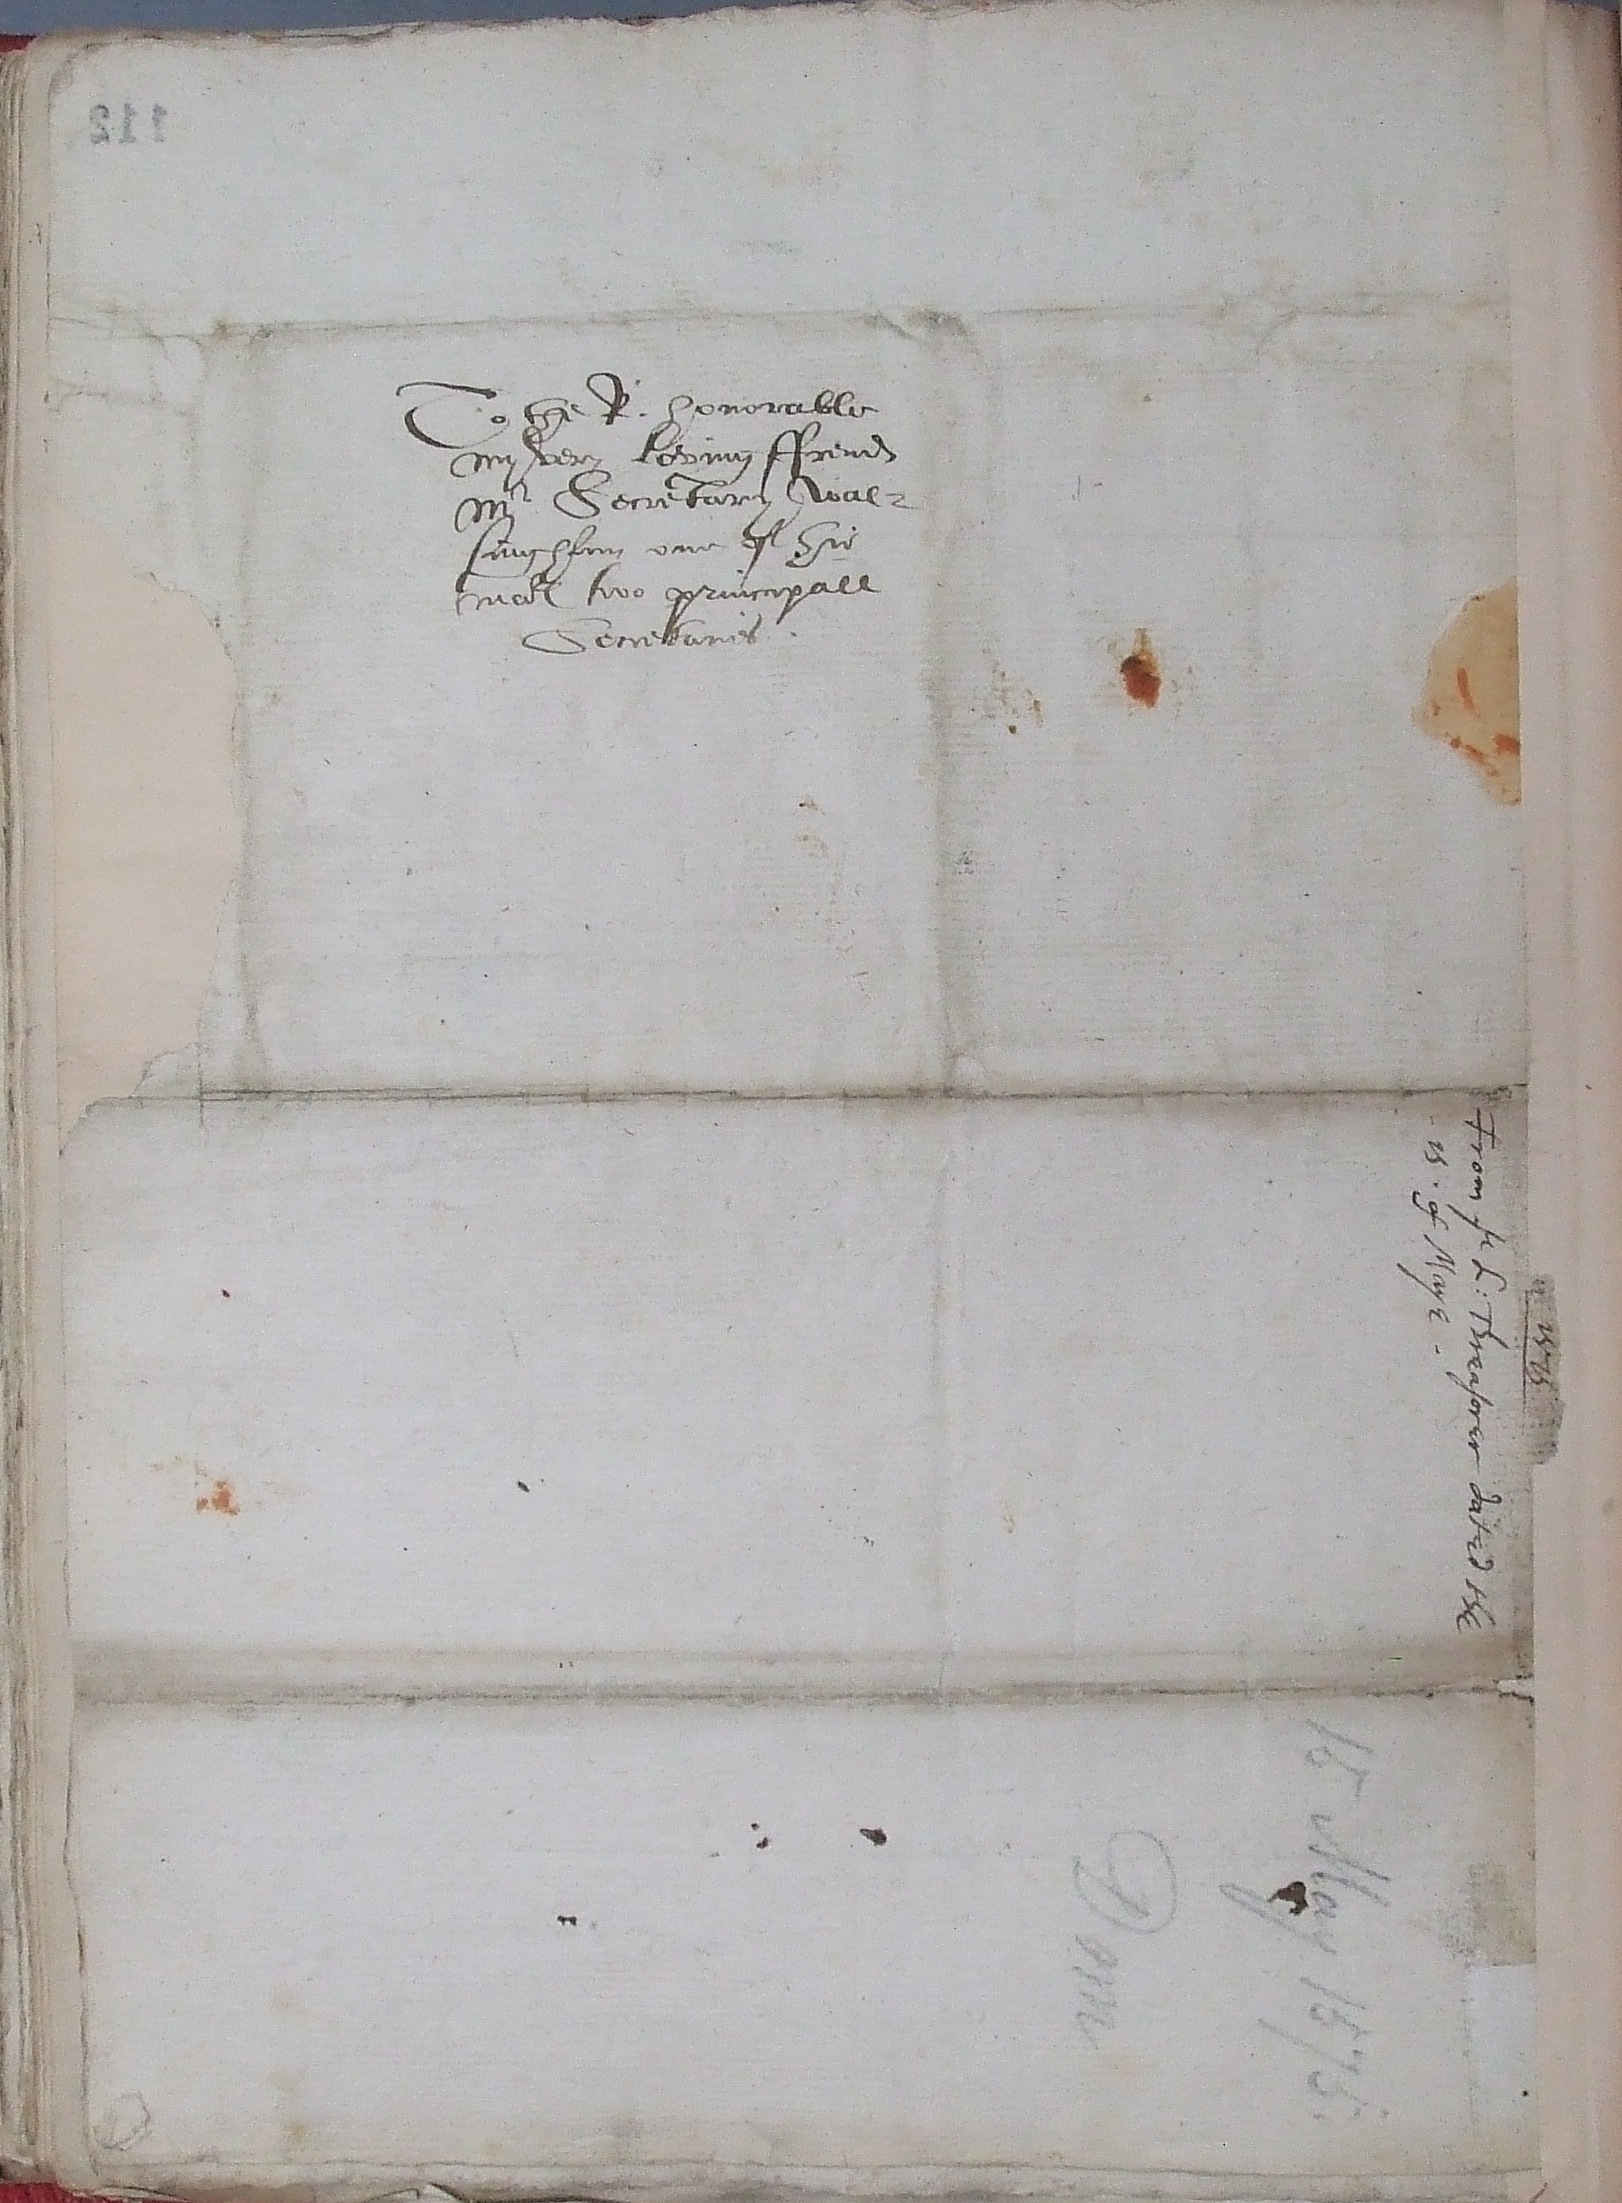 112
To the R. honorable
my very loving ffrend
Mr Secretary Wal=
singham one of hir
Mats two principall
Secretaries.
1575
From ye L: Threasorer dated the
15. of Maye.
15 May 1575.
Dom